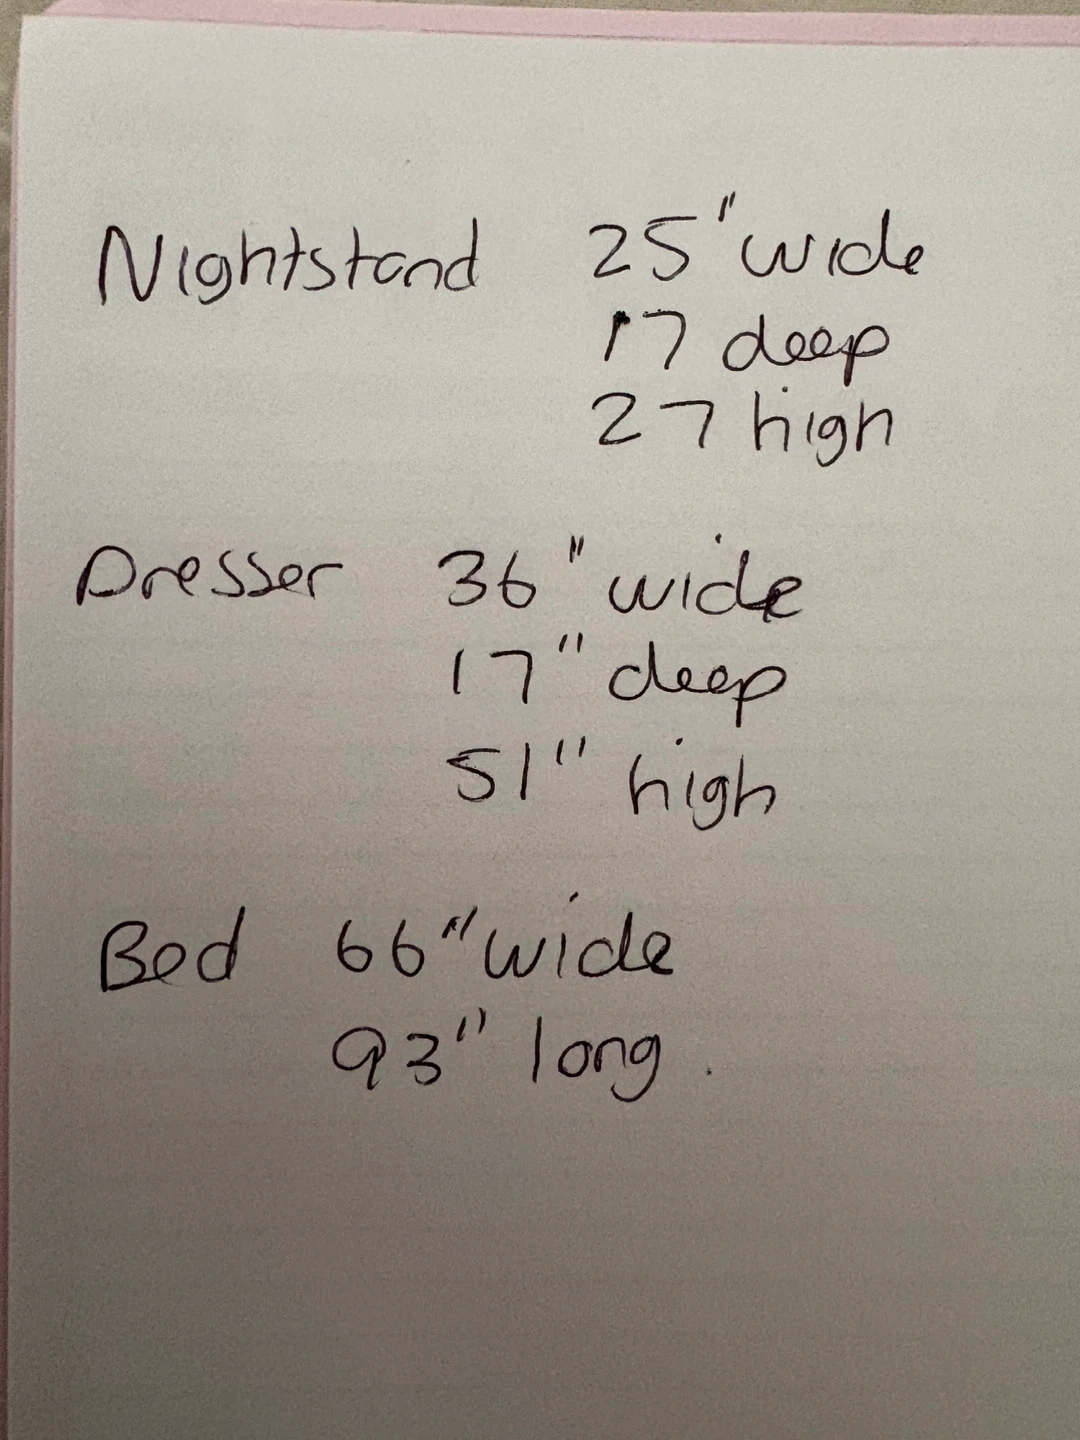 Nightstand 25" wide
17 deep
27 high
Dresser 36" wide
17" deep
51" high
Bed 66" wide
93" long.